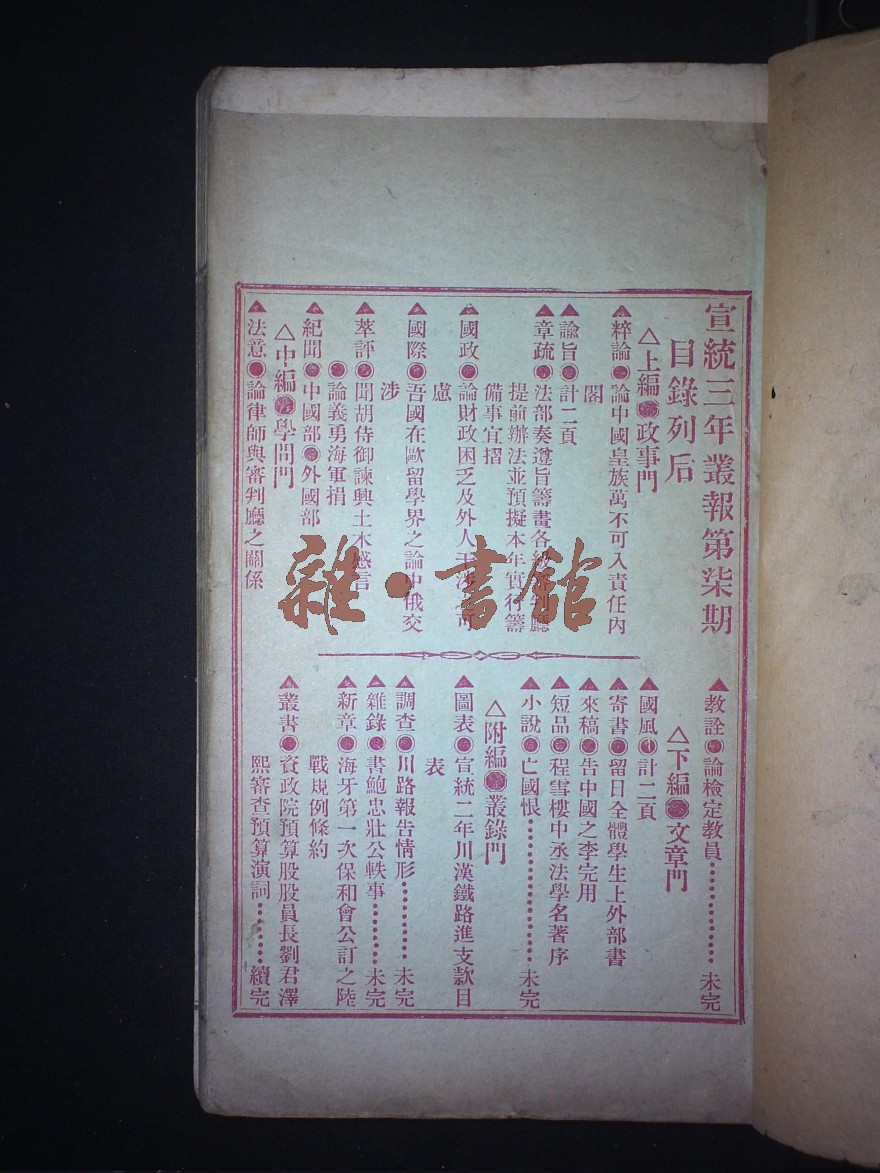 宣統三年叢報第柒期
目錄列后
△上編●政事門
▲粹論●論中國皇族萬不可入責任內
閣
▲諭旨●計二頁
▲章疏●法部奏遵旨籌畫各級審判廳
提前辦法並預擬本年實行籌
備事宜摺
▲國政●論財政困乏及外人干涉之可
慮
▲國際●吾國在歐留學界之論中俄交
涉
▲萃評●聞胡侍御諫興土木感言
●論義勇海軍捐
▲紀聞●中國部●外國部
△中編●學問門
▲法意●論律師與審判廳之關係
▲教詮●論檢定教員…………未完
△下編●文章門
▲國風●計二頁
▲寄書●留日全體學生上外部書
▲來稿●告中國之李完用
▲短品●程雪樓中丞法學名著序
▲小說●亡國恨…………………未完
△附編●叢錄門
▲圖表●宣統二年川漢鐵路進支款目
表
▲調查●川路報告情形…………未完
▲雜錄●書鮑忠壯公軼事………未完
▲新章●海牙第一次保和會公訂之陸
戰規例條約
▲叢書●資政院預算股股員長劉君澤
熙審查預算演詞………續完
雜·書館